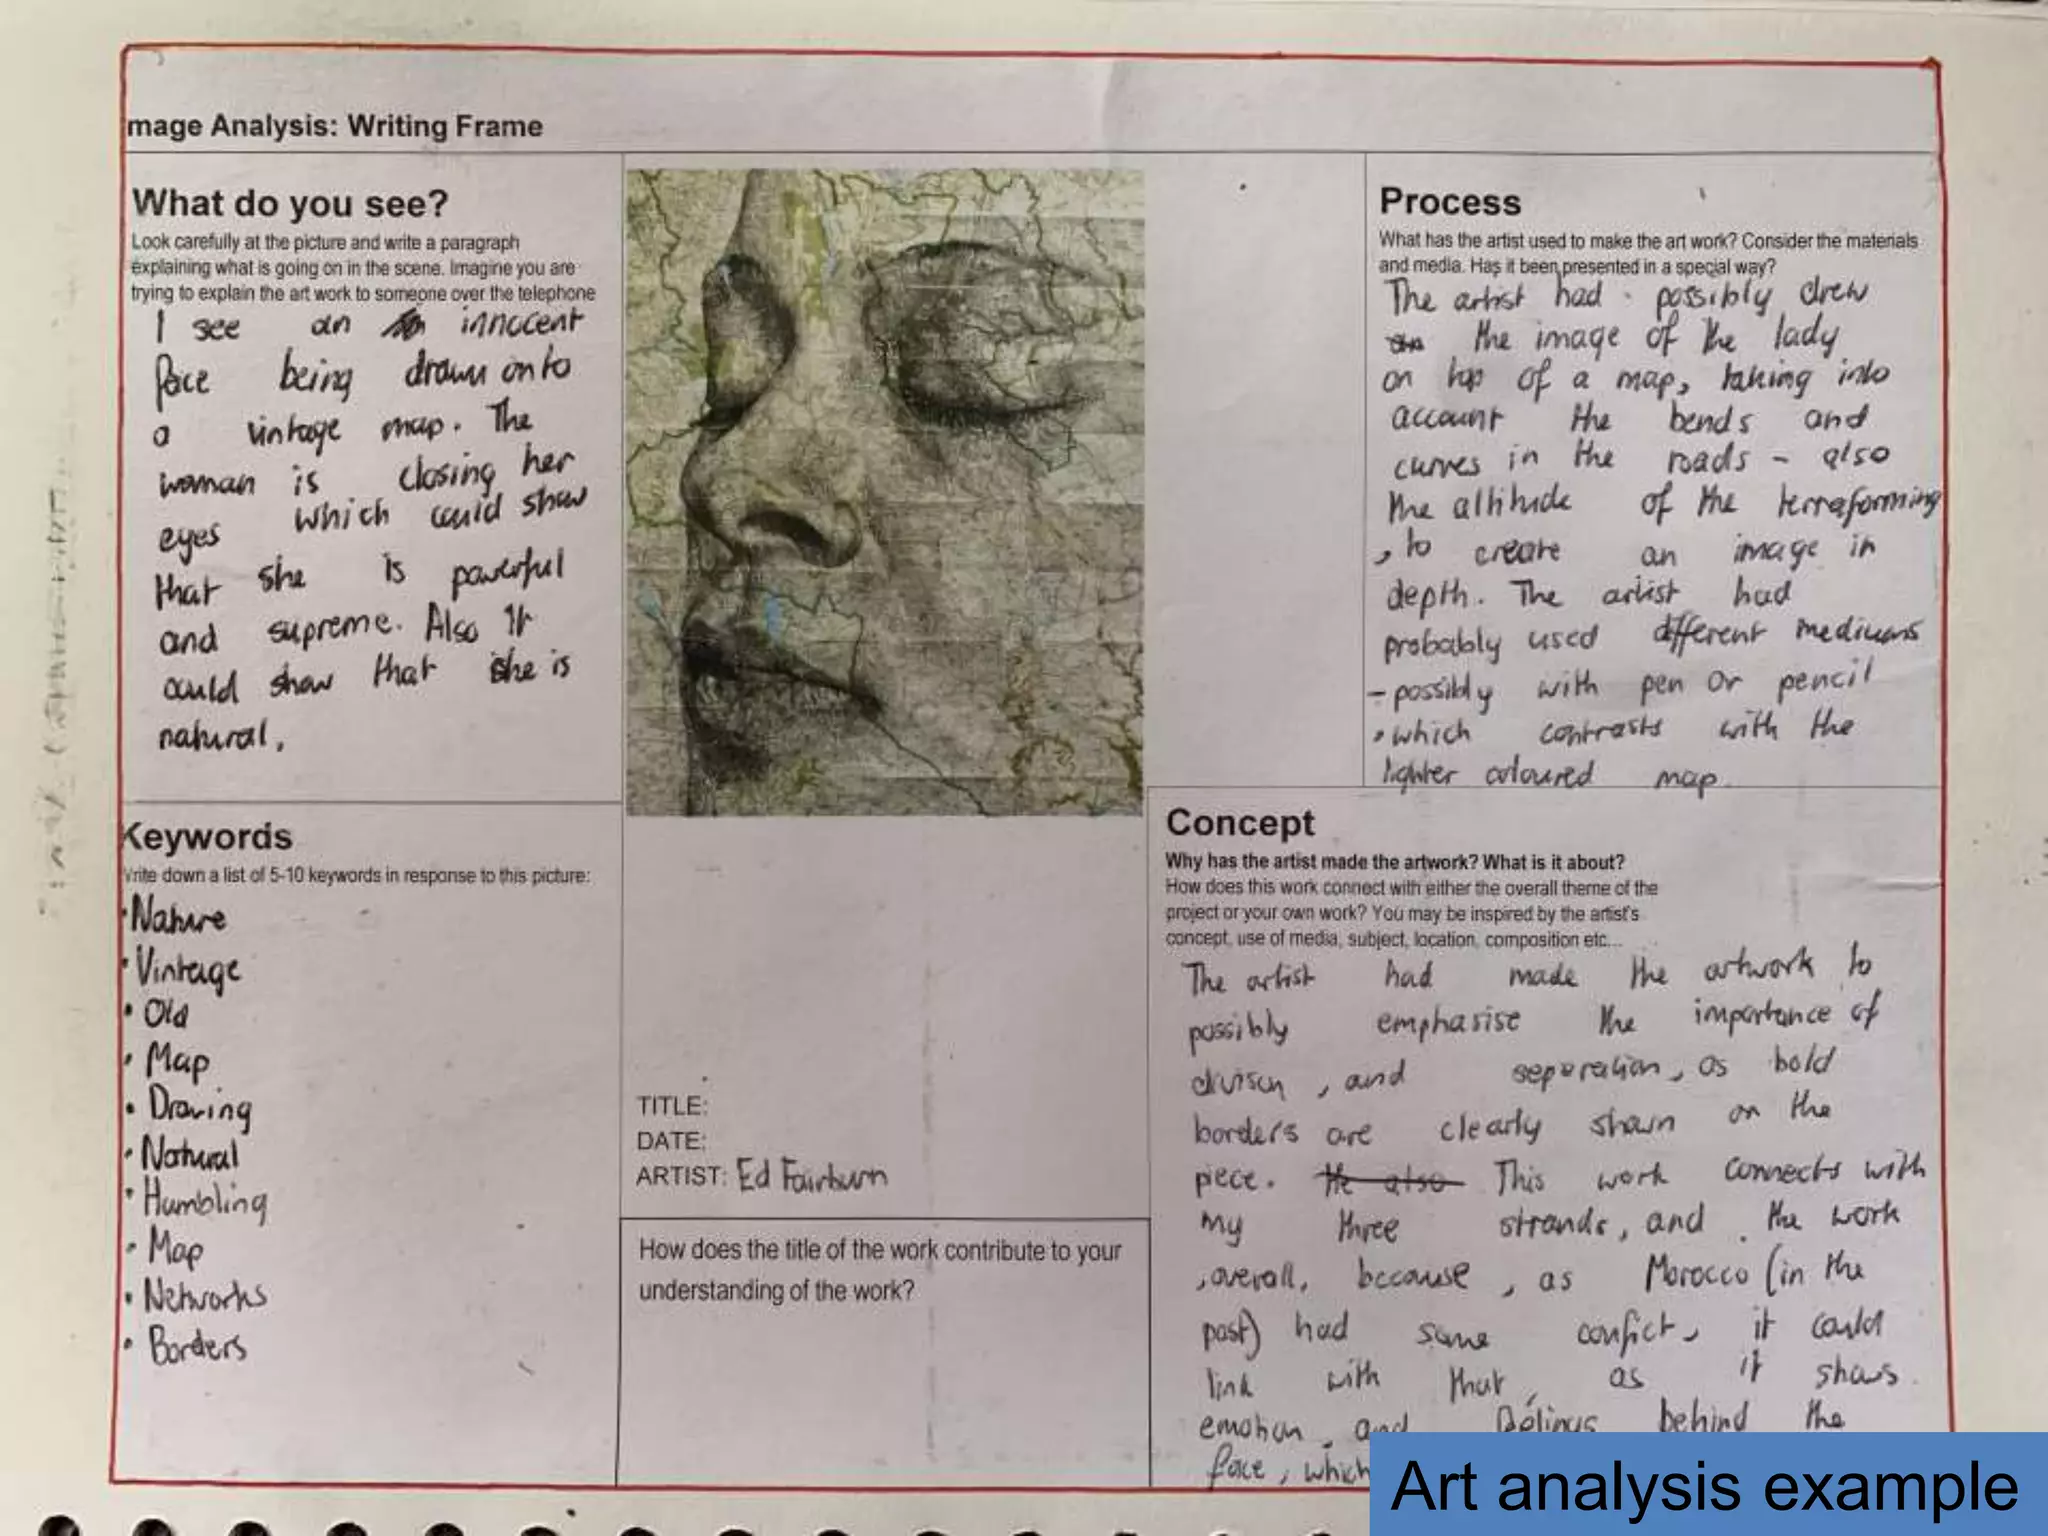 mage Analysis: Writing Frame
What do you see?
Look carefully at the picture and write a paragraph
explaining what is going on in the scene. Imagine you are
trying to explain the art work to someone over the telephone
I see an innocent
face being drawn onto
a vintage map. The
woman is closing her
eyes which could show
that she is powerful
and supreme. Also it
could show that she is
natural.
Keywords
Write down a list of 5-10 keywords in response to this picture:
• Nature
• Vintage
• Old
• Map
• Drawing
• Natural
• Humbling
• Map
• Networks
• Borders
TITLE:
DATE:
ARTIST: Ed Fairburn
How does the title of the work contribute to your
understanding of the work?
Process
What has the artist used to make the art work? Consider the materials
and media. Has it been presented in a special way?
The artist had possibly drew
the image of the lady
on top of a map, taking into
account the bends and
curves in the roads - also
the altitude of the terraforming
, to create an image in
depth. The artist had
probably used different mediums
- possibly with pen or pencil
• which contrasts with the
lighter coloured map.
Concept
Why has the artist made the artwork? What is it about?
How does this work connect with either the overall theme of the
project or your own work? You may be inspired by the artist's
concept, use of media, subject, location, composition etc...
The artist had made the artwork to
possibly emphasise the importance of
division, and seperation, as bold
borders are clearly shown on the
piece. He also This work connects with
my three strands, and the work
, overall, because, as Morocco (in the
past) had some confict, it could
link with that, as it shows
emotion, and behind the
face, which
Art analysis example